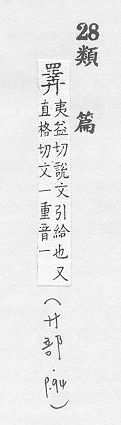 28
類篇
夷益切說文引給也又
直格切文一重音一
(廾部．p.94)